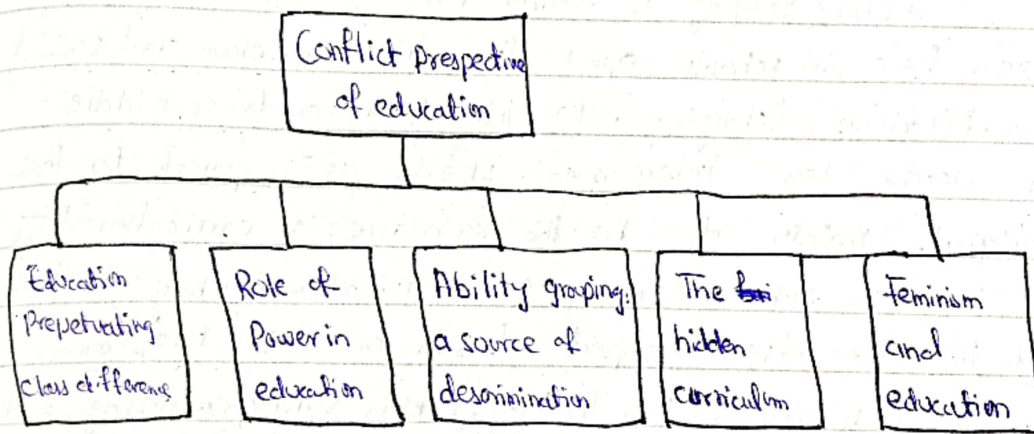 Conflict prespective
of education
Education
Prepetuating
Class difference
Role of
Power in
education
Ability grouping:
a source of
desrimination
The
hidden
curriculum
Feminism
and
education